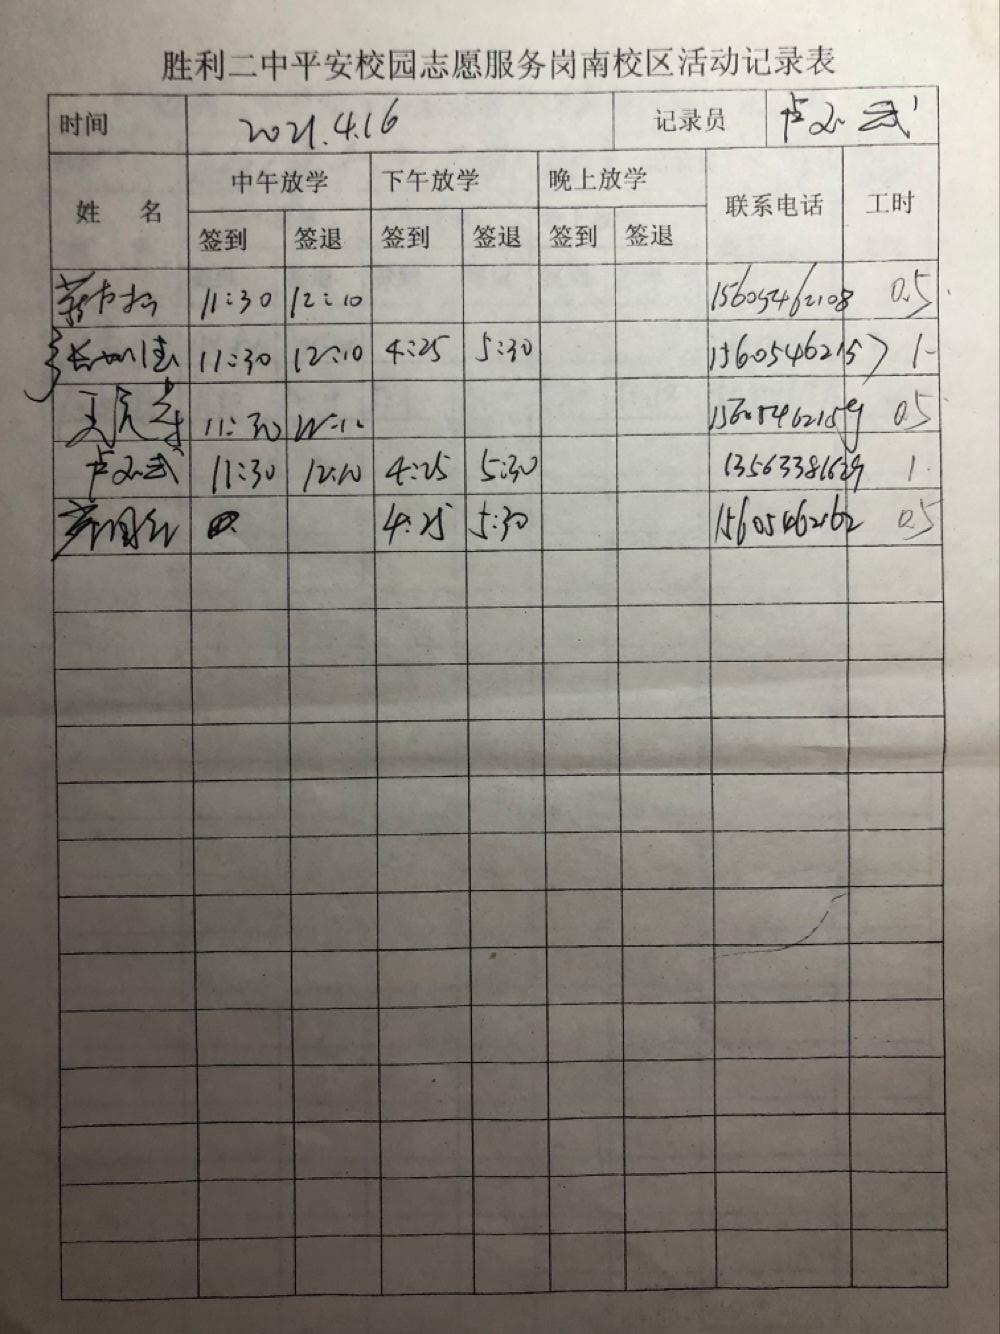 胜利二中平安校园志愿服务岗南校区活动记录表
时间 2021.4.16 记录员
姓 名 中午放学 下午放学 晚上放学 联系电话 工时
签到 签退 签到 签退 签到 签退
11:30 12:10 15605462108 0.5
11:30 12:10 4:25 5:30 15605462157 1
11:30 12:10 0.5
11:30 12:10 4:25 5:30 1
4:25 5:30 15605462162 0.5